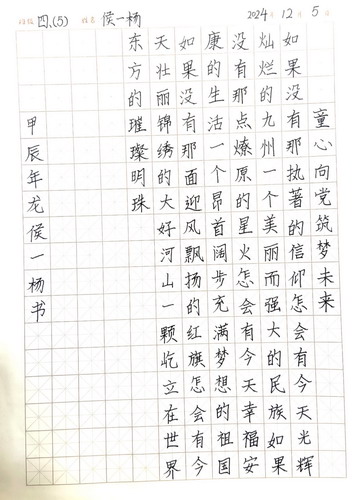 班级 四.(5) 姓名 侯一杨 2024年12月5日
童心向党筑梦未来
如果没有那执著的信仰怎会有今天光辉
灿烂的九州一个美丽而强大的民族如果
没有那点燎原的星火怎会有今天幸福安
康的生活一个昂首阔步充满梦想的祖国
如果没有那面迎风飘扬的红旗怎会有今
天壮丽锦绣的大好河山一颗屹立在世界
东方的璀璨明珠
甲辰年龙侯一杨书